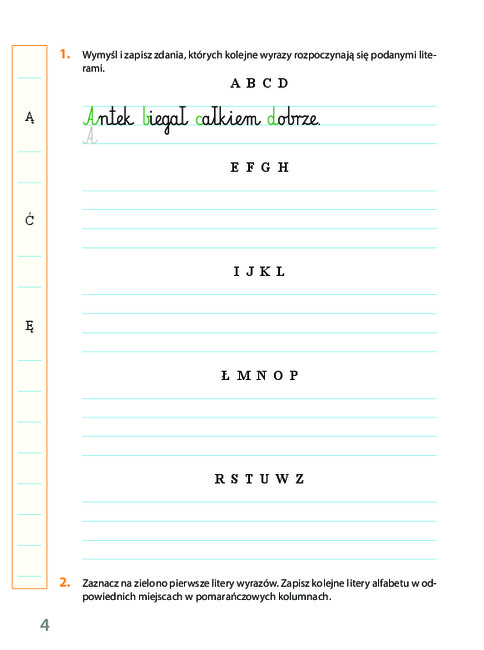 1. Wymyśl i zapisz zdania, których kolejne wyrazy rozpoczynają się podanymi lite-
rami.
A B C D
Antek biegał całkiem dobrze.
A
E F G H
I J K L
Ł M N O P
R S T U W Z
Ą
Ć
Ę
2. Zaznacz na zielono pierwsze litery wyrazów. Zapisz kolejne litery alfabetu w od-
powiednich miejscach w pomarańczowych kolumnach.
4